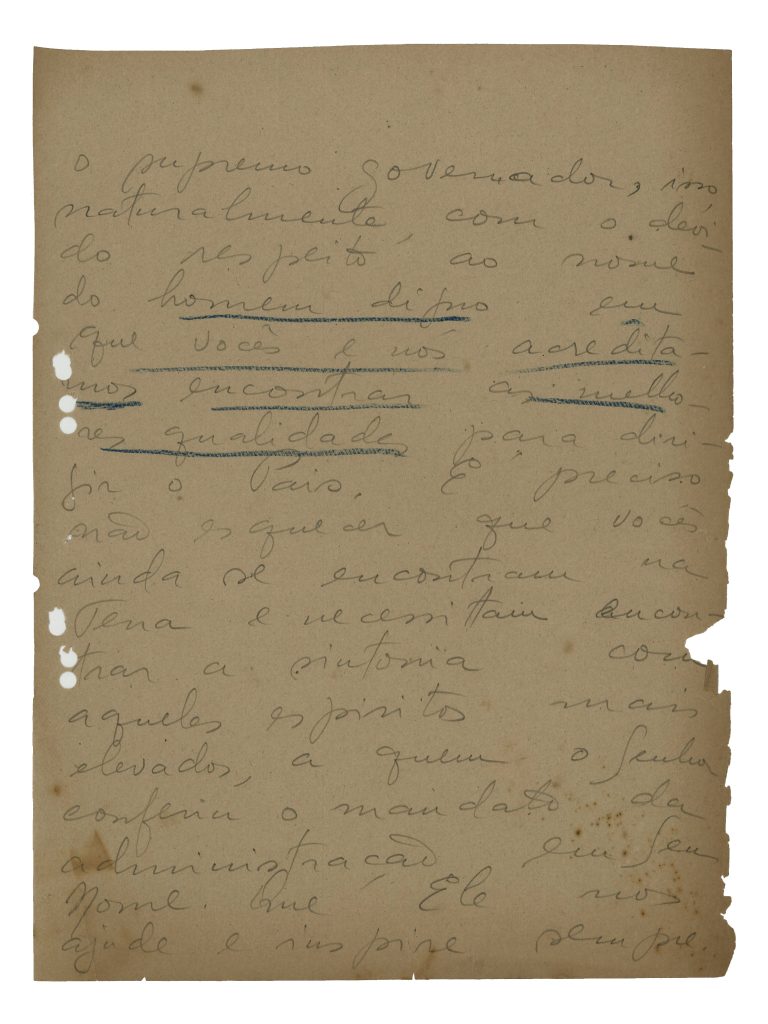 o supremo governador, isso,
naturalmente, com o devi-
do respeito ao nome
do homem digno em
que vocês e nós acredita-
mos encontrar as melho-
res qualidades para diri-
gir o País. É preciso
não esquecer que vocês
ainda se encontram na
Terra e necessitam encon-
trar a sintonia com
aqueles espiritos mais
elevados, a quem o Senhor
conferiu o mandato da
administração em Seu
Nome. Que Ele nos
ajude e inspire sempre.